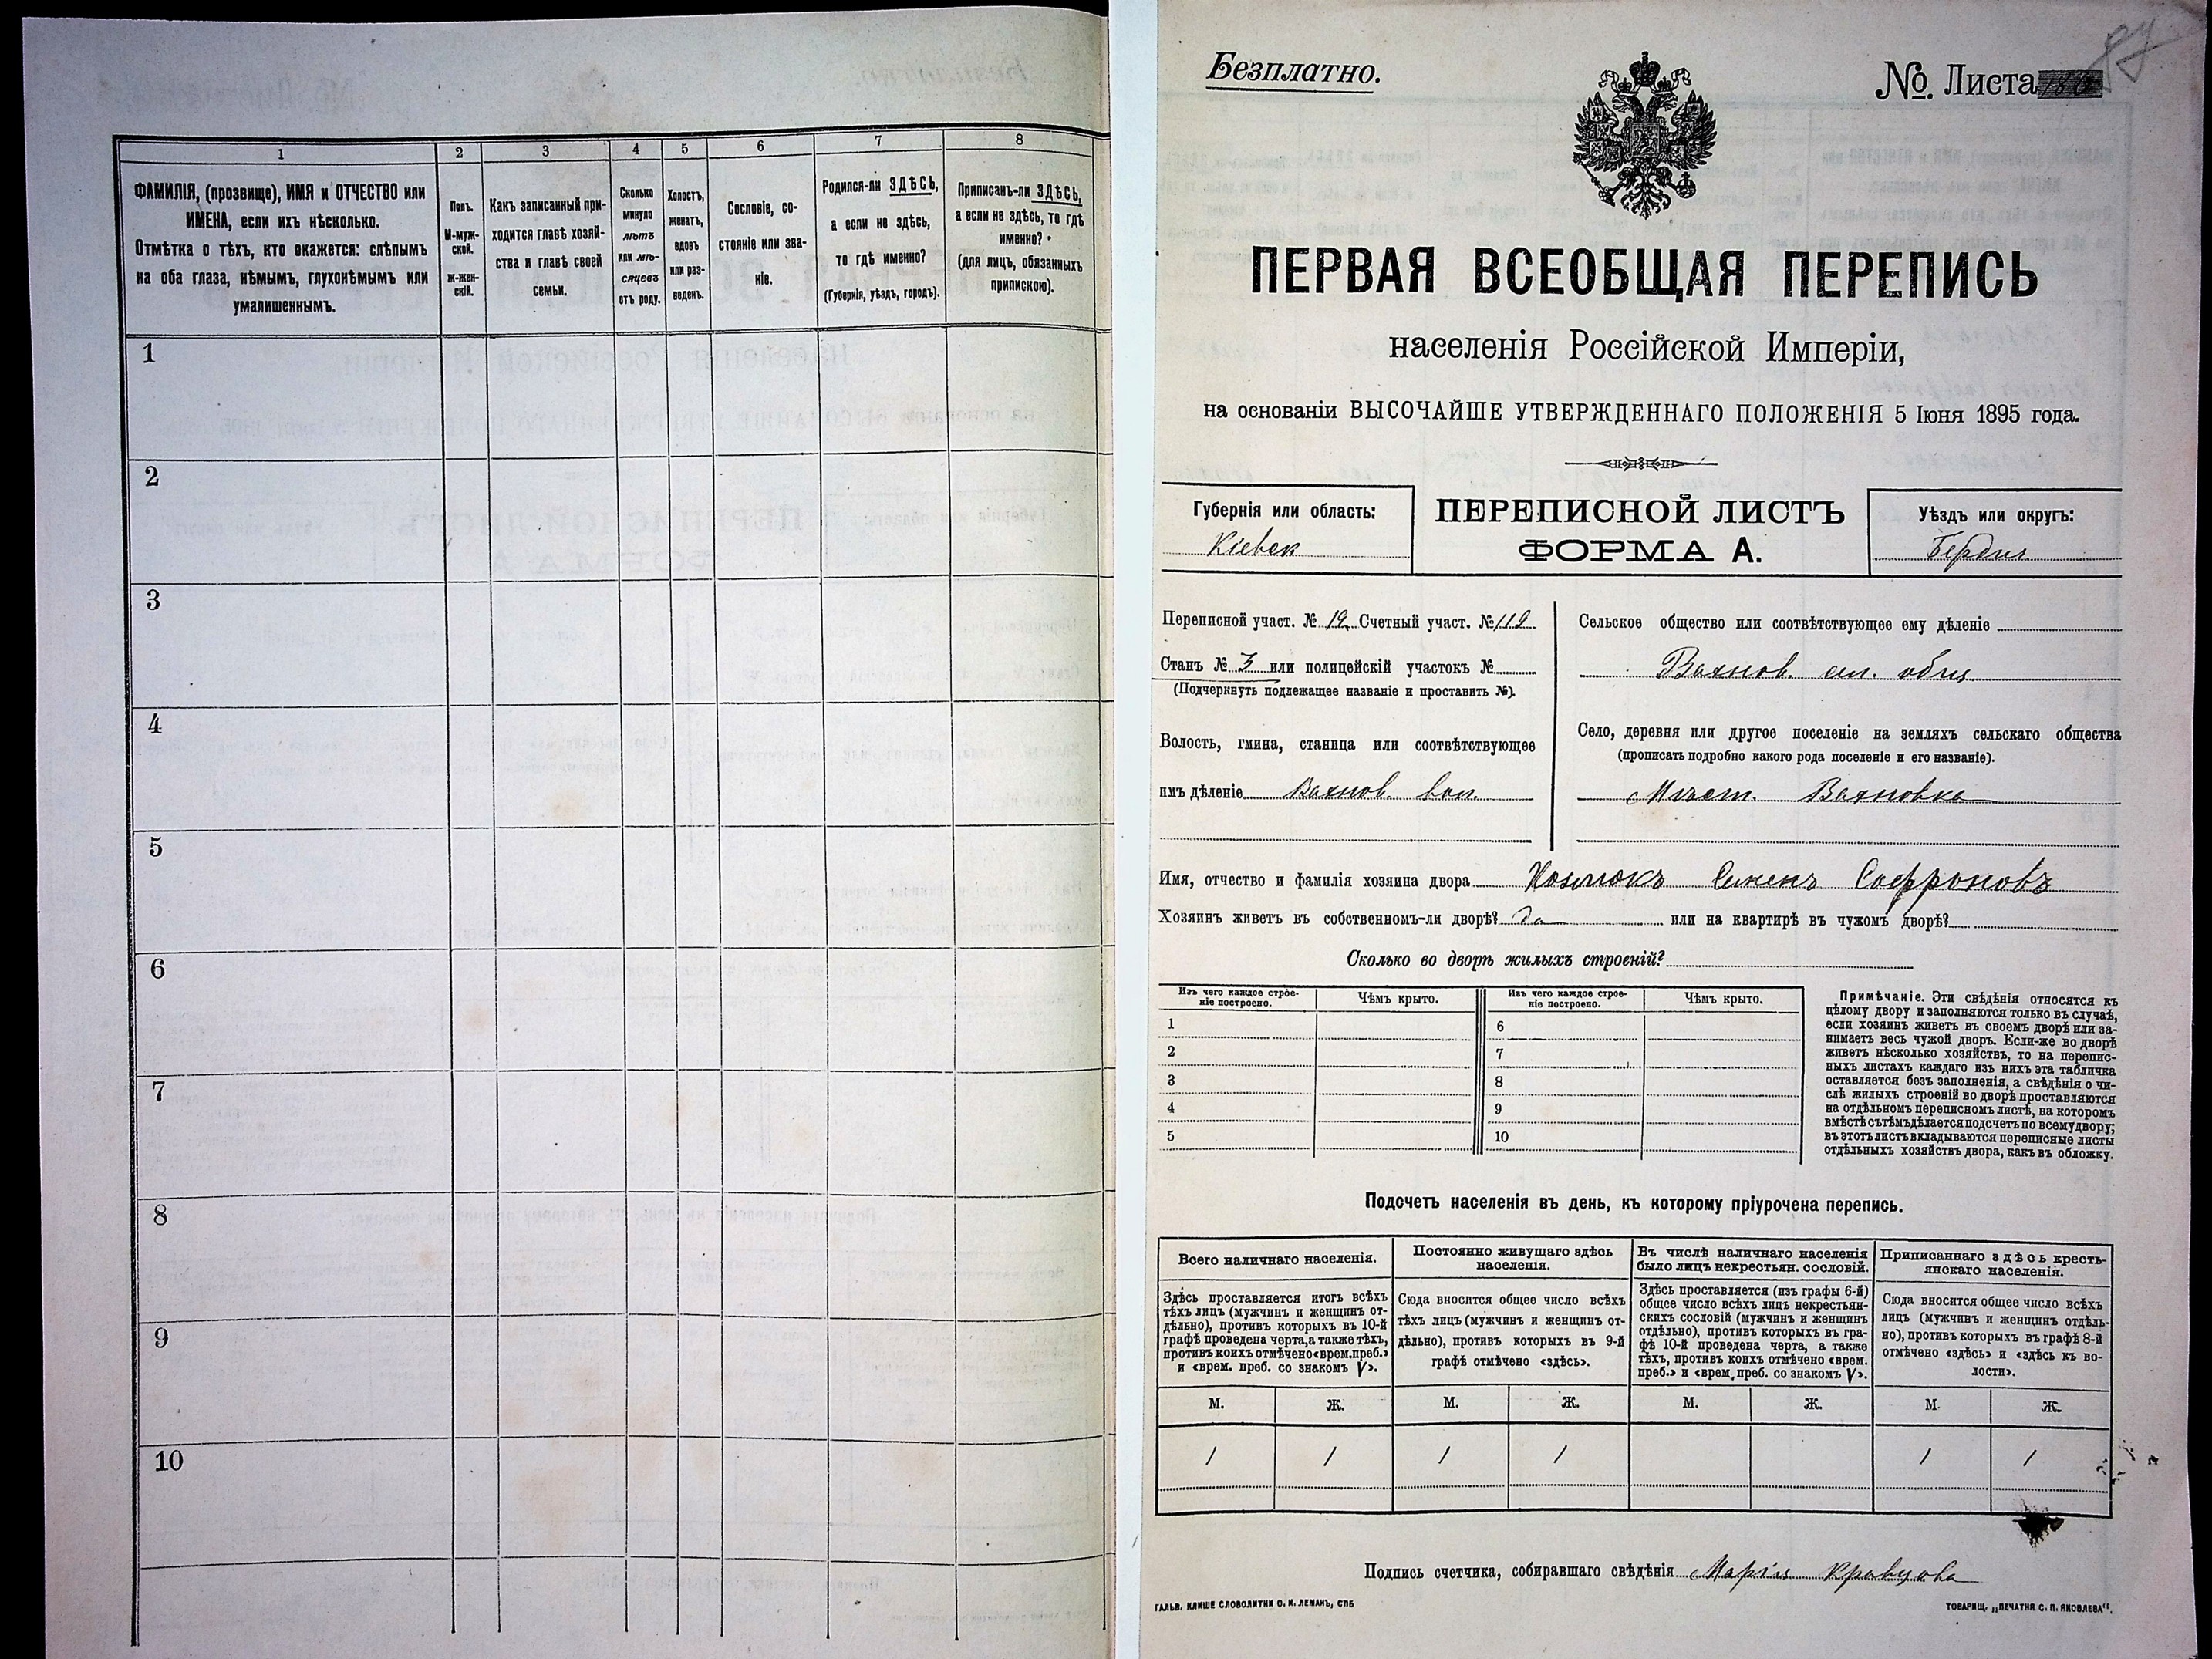 1
2
3
4
5
6
7
8
ФАМИЛІЯ, (прозвище), ИМЯ и ОТЧЕСТВО или
ИМЕНА, если ихъ нѣсколько.
Отмѣтка о тѣхъ, кто окажется: слѣпымъ
на оба глаза, нѣмымъ, глухонѣмымъ или
умалишеннымъ.
Полъ.
М-муж-
ской.
Ж-жен-
скій.
Какъ записанный при-
ходится главѣ хозяй-
ства и главѣ своей
семьи.
Сколько
минуло
лѣтъ
или мѣ-
сяцевъ
отъ роду.
Холостъ,
женатъ,
вдовъ
или раз-
веденъ.
Сословіе, со-
стояніе или зва-
ніе.
Родился-ли ЗДѢСЬ,
а если не здѣсь,
то гдѣ именно?
(Губернія, уѣздъ, городъ).
Приписанъ-ли ЗДѢСЬ,
а если не здѣсь, то гдѣ
именно?
(для лицъ, обязанныхъ
припискою).
1
2
3
4
5
6
7
8
9
10
Безплатно.
№. Листа
ПЕРВАЯ ВСЕОБЩАЯ ПЕРЕПИСЬ
населенія Россійской Имперіи,
на основаніи ВЫСОЧАЙШЕ УТВЕРЖДЕННАГО ПОЛОЖЕНІЯ 5 Іюня 1895 года.
Губернія или область:
Кіевск
ПЕРЕПИСНОЙ ЛИСТЪ
ФОРМА А.
Уѣздъ или округъ:
Бердич.
Переписной участ. № 12 Счетный участ. № 119
Станъ № 3 или полицейскій участокъ №
(Подчеркнуть подлежащее названіе и проставить №).
Волость, гмина, станица или соотвѣтствующее
имъ дѣленіе Вахнов. вол.
Сельское общество или соотвѣтствующее ему дѣленіе
Вахнов. сел. общ
Село, деревня или другое поселеніе на земляхъ сельскаго общества
(прописать подробно какого рода поселеніе и его названіе).
Мѣст. Вахновка
Имя, отчество и фамилія хозяина двора Семенъ Софроновъ
Хозяинъ живетъ въ собственномъ-ли дворѣ? да или на квартирѣ въ чужомъ дворѣ?
Сколько во дворѣ жилыхъ строеній?
Изъ чего каждое строе-
ніе построено.
Чѣмъ крыто.
Изъ чего каждое строе-
ніе построено.
Чѣмъ крыто.
1
2
3
4
5
6
7
8
9
10
Примѣчаніе. Эти свѣдѣнія относятся къ
цѣлому двору и заполняются только въ случаѣ,
если хозяинъ живетъ въ своемъ дворѣ или за-
нимаетъ весь чужой дворъ. Если-же во дворѣ
живетъ нѣсколько хозяйствъ, то на перепис-
ныхъ листахъ каждаго изъ нихъ эта табличка
оставляется безъ заполненія, а свѣдѣнія о чи-
слѣ жилыхъ строеній во дворѣ проставляются
на отдѣльномъ переписномъ листѣ, на которомъ
вмѣстѣ съ тѣмъ дѣлается подсчетъ по всему двору;
въ этотъ листъ вкладываются переписные листы
отдѣльныхъ хозяйствъ двора, какъ въ обложку.
Подсчетъ населенія въ день, къ которому пріурочена перепись.
Всего наличнаго населенія.
Здѣсь проставляется итогъ всѣхъ
тѣхъ лицъ (мужчинъ и женщинъ от-
дѣльно), противъ которыхъ въ 10-й
графѣ проведена черта, а также тѣхъ,
противъ коихъ отмѣчено «врем. преб.»
и «врем. преб. со знакомъ V».
Постоянно живущаго здѣсь
населенія.
Сюда вносится общее число всѣхъ
тѣхъ лицъ (мужчинъ и женщинъ от-
дѣльно), противъ которыхъ въ 9-й
графѣ отмѣчено «здѣсь».
Въ числѣ наличнаго населенія
было лицъ некрестьян. сословій.
Здѣсь проставляется (изъ графы 6-й)
общее число всѣхъ лицъ некрестьян-
скихъ сословій (мужчинъ и женщинъ
отдѣльно), противъ которыхъ въ гра-
фѣ 10-й проведена черта, а также
тѣхъ, противъ коихъ отмѣчено «врем.
преб.» и «врем. преб. со знакомъ V».
Приписаннаго здѣсь кресть-
янскаго населенія.
Сюда вносится общее число всѣхъ
лицъ (мужчинъ и женщинъ отдѣль-
но), противъ которыхъ въ графѣ 8-й
отмѣчено «здѣсь» и «здѣсь къ во-
лости».
М. Ж. М. Ж. М. Ж. М. Ж.
1 1 1 1 1 1
Подпись счетчика, собиравшаго свѣдѣнія Марія Кравцова
ГАЛЬВ. КЛИШЕ СЛОВОЛИТНИ О. И. ЛЕМАНЪ, СПБ
ТОВАРИЩ. „ПЕЧАТНЯ С. П. ЯКОВЛЕВА".